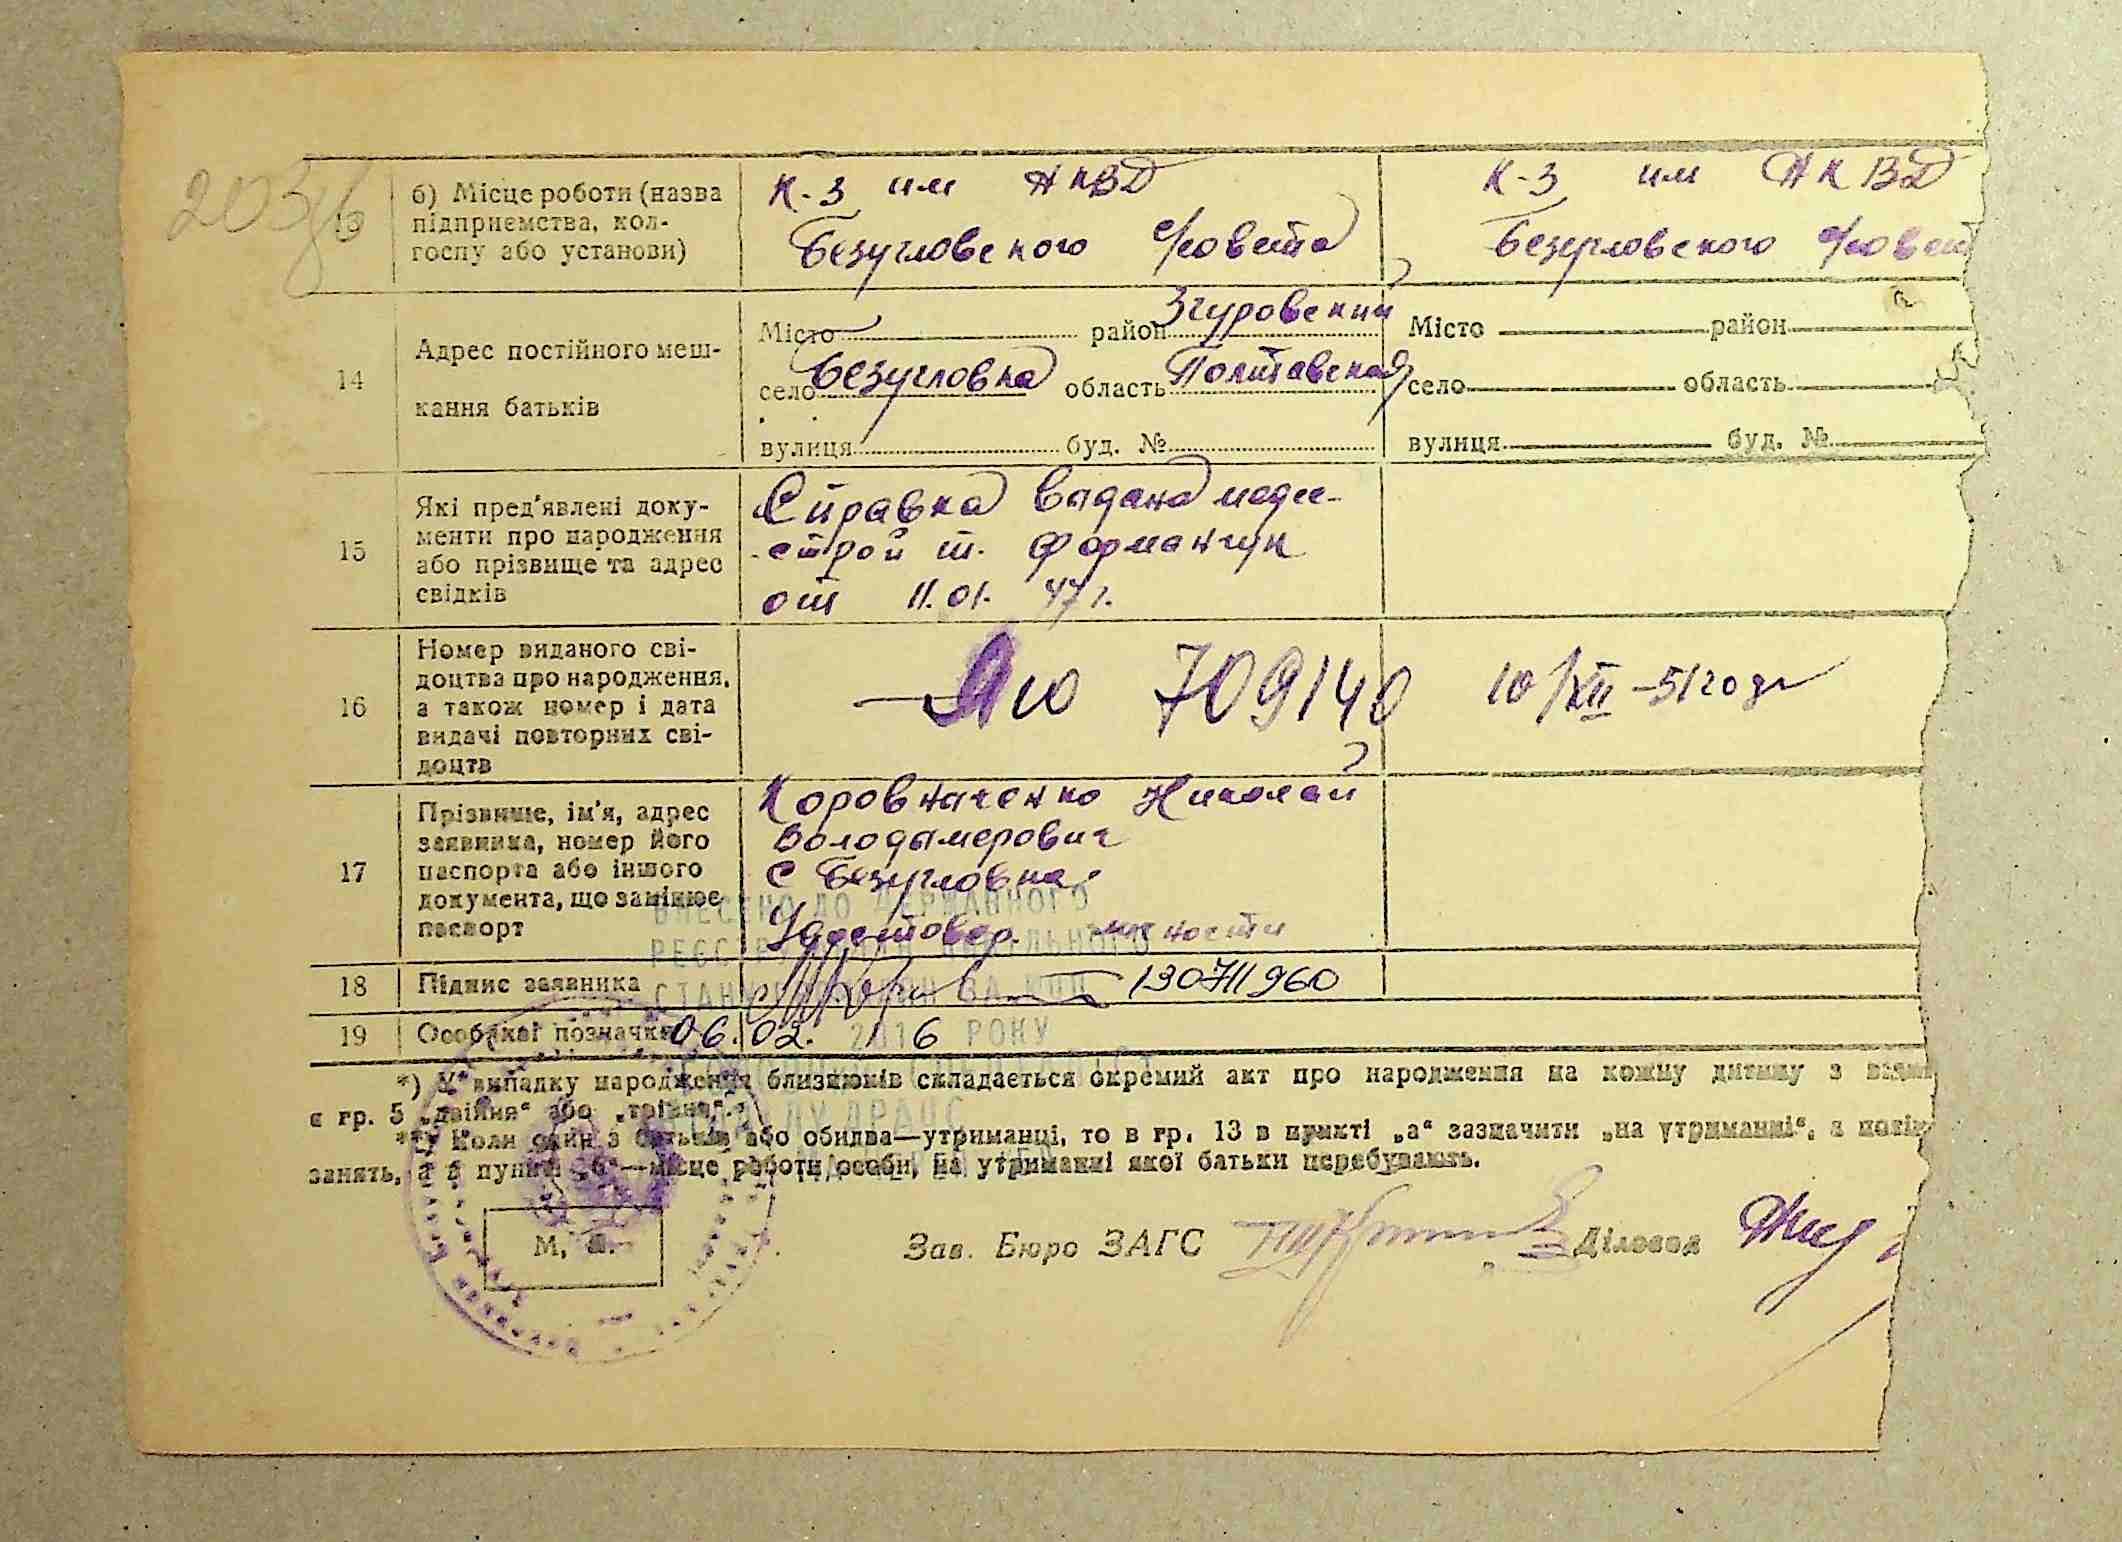 203
13
б) Місце роботи (назва
підприємства, кол-
госпу або установи)
К-з им НКВД
Безугловского с/совета
К-з им НКВД
Безугловского с/совет
14
Адрес постійного меш-
кання батьків
Місто район Згуровский
село Безугловка область Полтавская
вулиця буд. №
Місто район
село область
вулиця буд. №
15
Які пред'явлені доку-
менти про народження
або прізвище та адрес
свідків
Справка выдана медсе-
строй т. Форманчук
от 11.01. 47 г.
16
Номер виданого сві-
доцтва про народження,
а також номер і дата
видачі повторних сві-
доцтв
ЯЮ 709140 10/XII-51 года
17
Прізвище, ім'я, адрес
заявника, номер його
паспорта або іншого
документа, що замінює
паспорт
Николай
Володымерович
с Безугловка
Удостовер. личности
18
Підпис заявника
130711960
19
Особливі позначки
ВНЕСЕНО ДО ДЕРЖАВНОГО
РЕЄСТРУ
06.02. 2016 РОКУ
*) У випадку народження близнюків складається окремий акт про народження на кожну дитину з
в гр. 5 „двійня“ або „трійня“.
**) Коли один з батьків або обидва—утриманці, то в гр. 13 в пункті „а“ зазначити „на утриманні“, а
занять, а в пункті „б“—місце роботи особи, на утриманні якої батьки перебувають.
М. П.
Зав. Бюро ЗАГС
Діловод